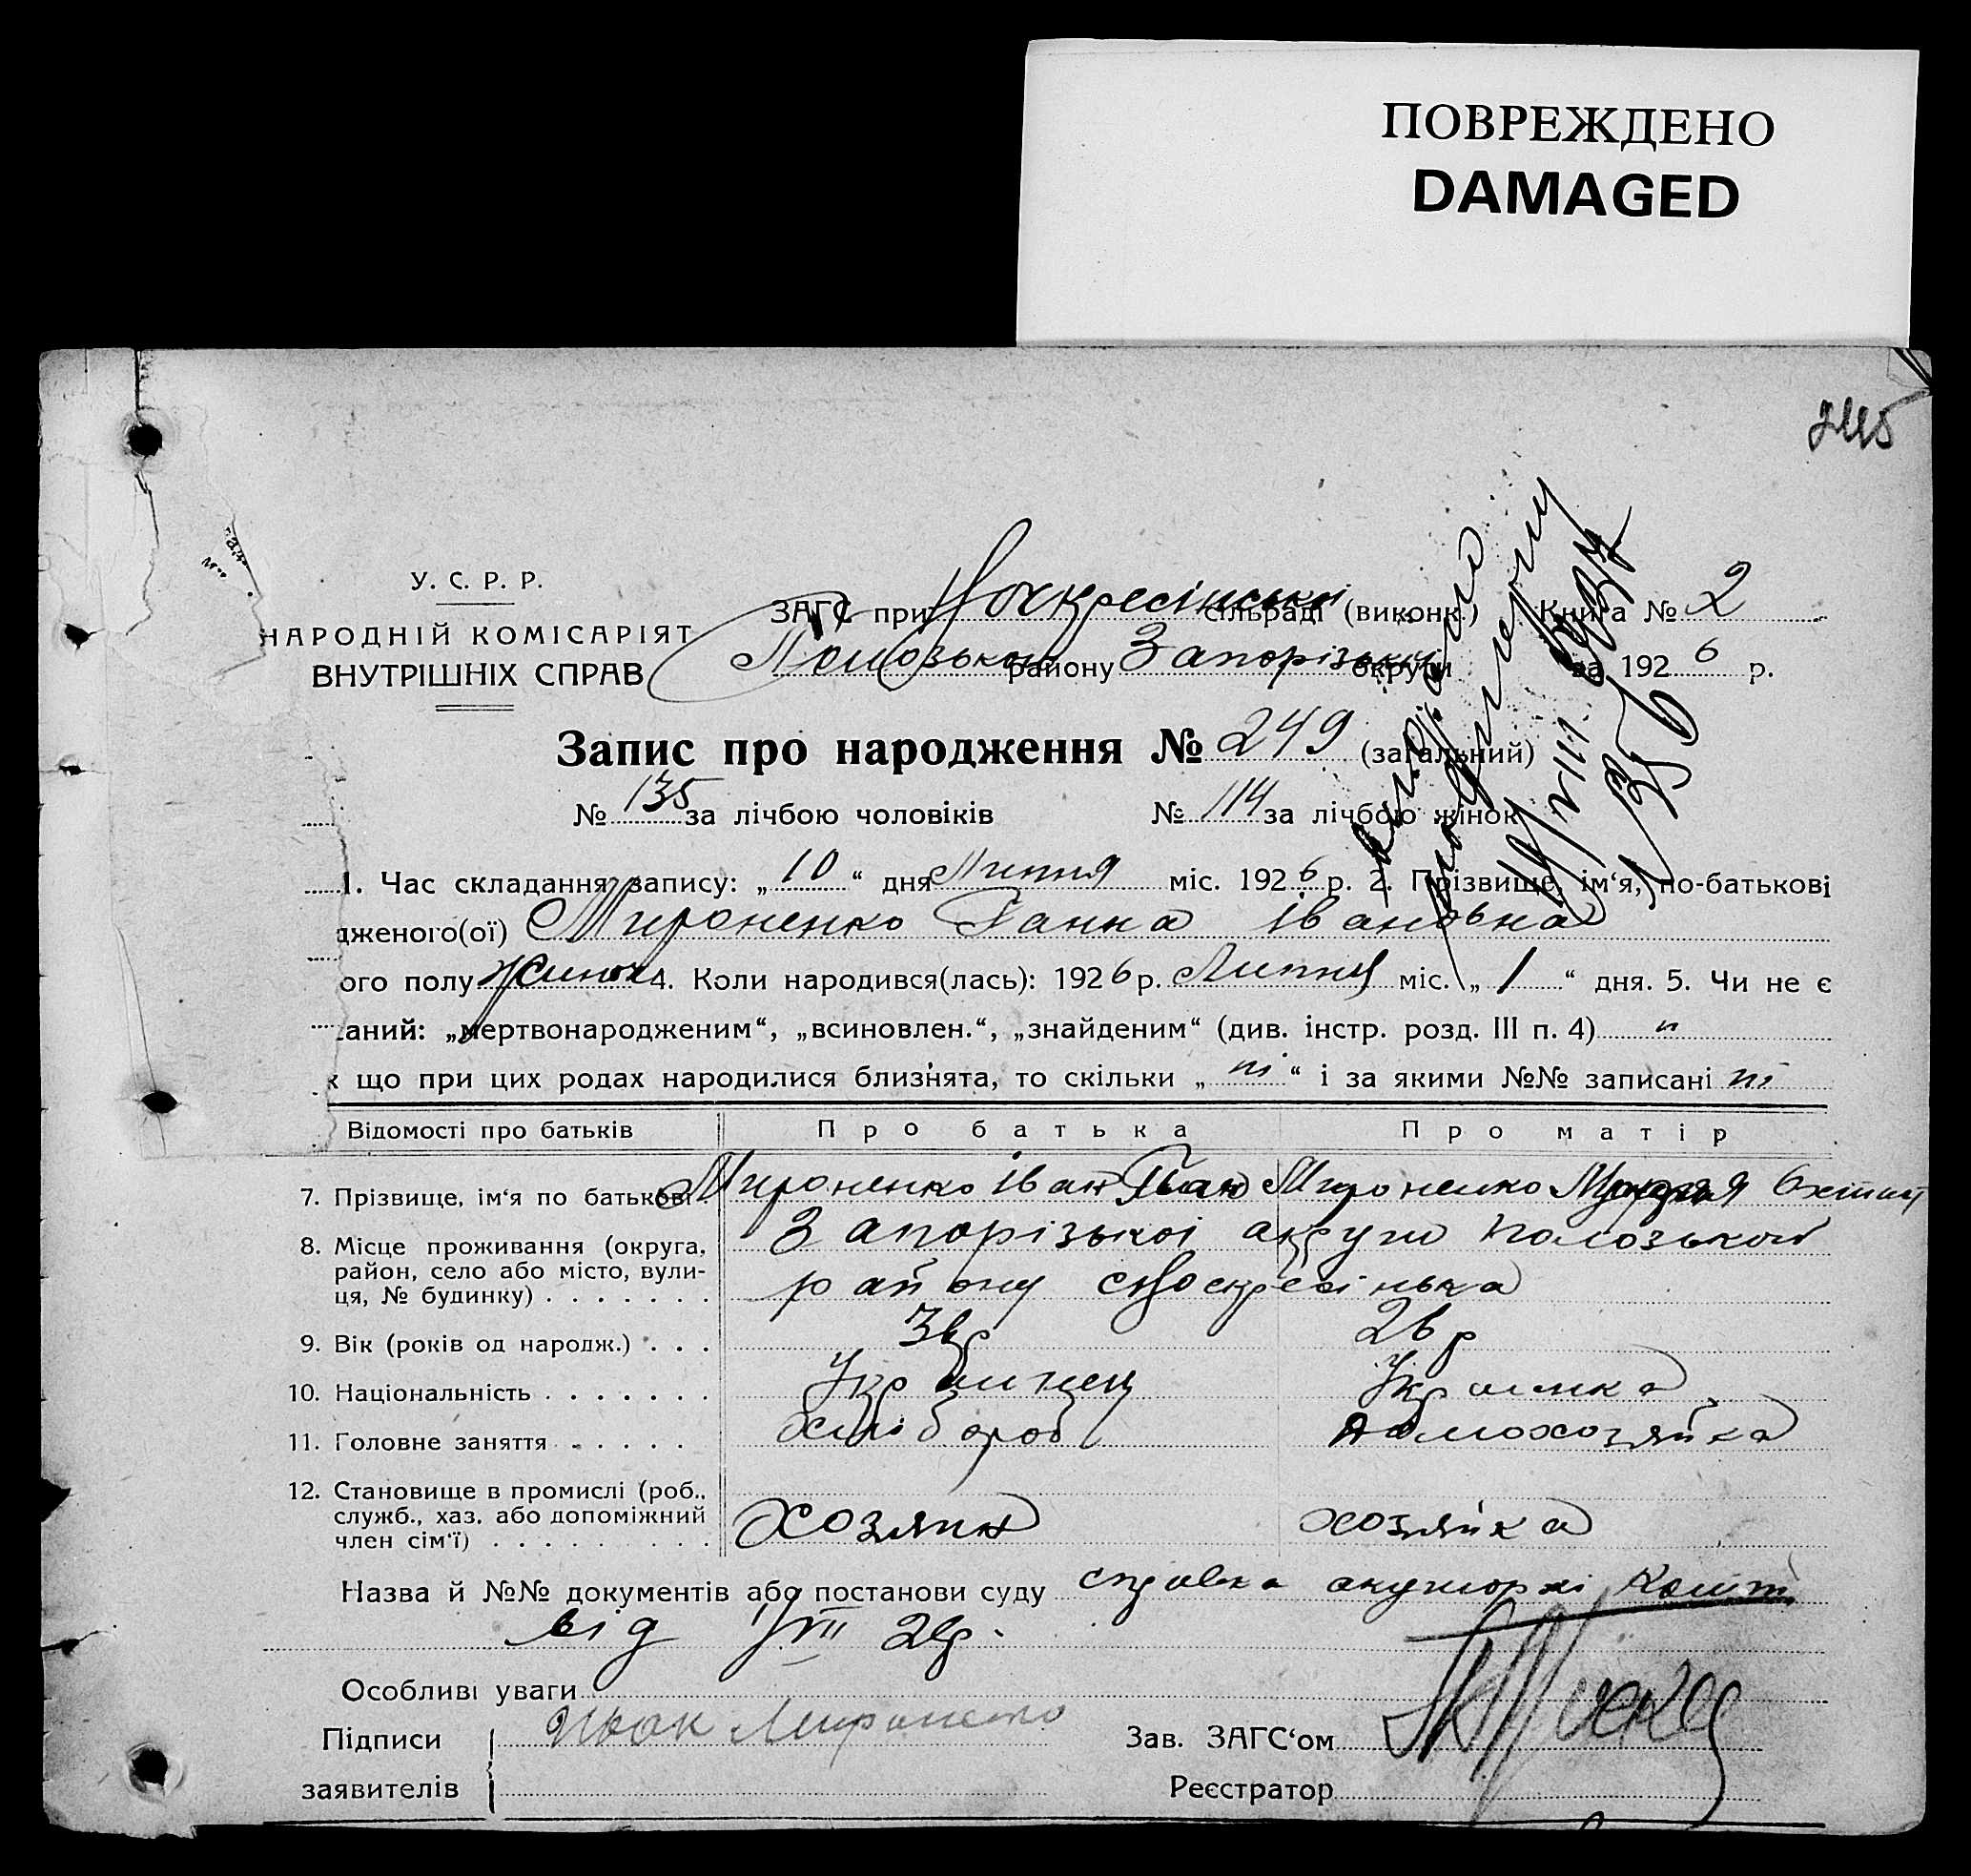 ПОВРЕЖДЕНО
DAMAGED
245
У. С. Р. Р.
НАРОДНІЙ КОМІСАРІЯТ
ВНУТРІШНІХ СПРАВ
ЗАГС при Воскресінській сільраді (виконк.) Книга № 2
Пологзькои району Запорізької округи за 1926 р.
Запис про народження № 249 (загальний)
№ 135 за лічбою чоловіків № 114 за лічбою жінок
1. Час складання запису: „10“ дня Липня міс. 1926 р. 2. Прізвище, ім‘я, по-батькові
дженого(ої) Мироненко Ганна Івановна
ого полу жіноч 4. Коли народився(лась): 1926 р. Липня міс. „1“ дня. 5. Чи не є
аний: „мертвонародженим“, „всиновлен.“, „знайденим“ (див. інстр. розд. III п. 4) н
к що при цих родах народилися близнята, то скільки „ні“ і за якими №№ записані ні
Відомості про батьків Про батька Про матір
7. Прізвище, ім‘я по батькові Мироненко Іван Мироненко
8. Місце проживання (округа, район, село або місто, вулиця, № будинку) Запорізької округи Полозькои
району с Воскресінька
9. Вік (років од народж.) 26 р
10. Національність Українец Українка
11. Головне заняття Хлібороб домохозяйка
12. Становище в промислі (роб., служб., хаз. або допоміжний член сім‘ї) хозяин хозяйка
Назва й №№ документів або постанови суду справка акушоркі
від 1/VII 26р.
Особливі уваги
Підписи Иван Мироненко Зав. ЗАГС‘ом
заявителів Реєстратор